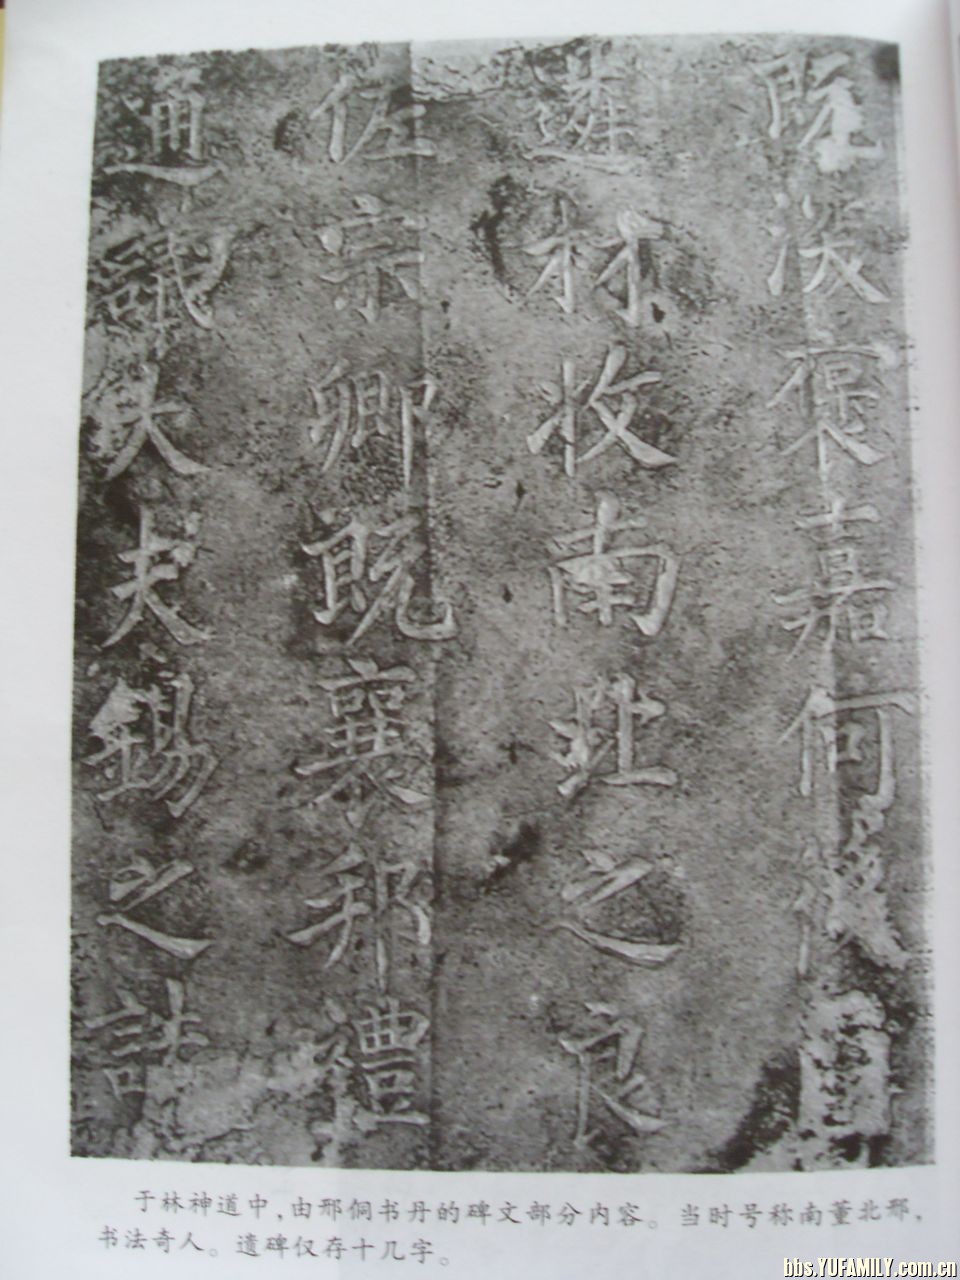 既淡襃嘉何
遴材收南牡之良
佐宗卿既襄邦禮
通議大夫錫之誥
于林神道中,由邢侗书丹的碑文部分内容。当时号称南董北邢,
书法奇人。遗碑仅存十几字。
bbs.YUFAMILY.com.cn